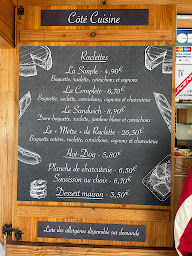 Côté Cuisine
Raclettes
La Simple - 4,90€
Baguette, raclette, cornichons et oignons
La Complète - 6,70€
Baguette, raclette, cornichons, oignons et charcuterie
Le Sandwich - 8,90€
Demi-baguette, raclette, jambon blanc et cornichons
Le « Mètre » de Raclette - 26,50€
Baguette entière, raclette, cornichons, oignons et charcuterie
Hot-Dog - 5,80€
Planche de charcuterie - 6,50€
Saucisson au choix - 6,70€
Dessert maison - 3,50€
Liste des allergènes disponible sur demande